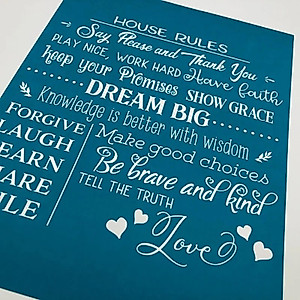 HOUSE RULES
Say Please and Thank You
PLAY NICE, WORK HARD Have faith
Keep your Promises SHOW GRACE
DREAM BIG
Knowledge is better with wisdom
FORGIVE
LAUGH
LEARN
SHARE
Make good choices
Be brave and kind
TELL THE TRUTH
Love